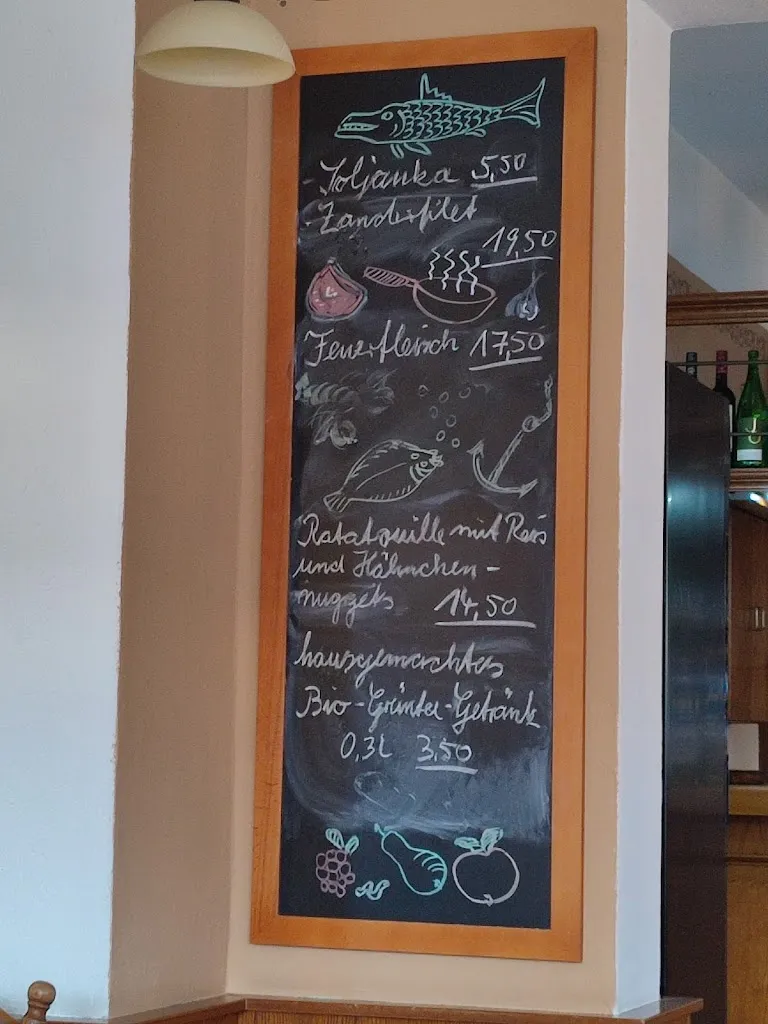 - Soljanka 5,50
- Zanderfilet
19,50
Feuerfleisch 17,50
Ratatouille mit Reis
und Hähnchen-
nuggets 14,50
hausgemachtes
Bio-Grüntee-Getränk
0,3L 3,50